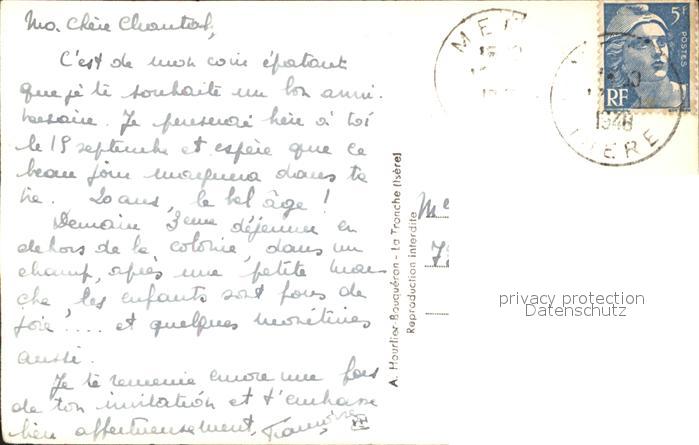 Ma Chère Chantal,
C'est de mon coin épatant
que je te souhaite un bon anni-
versaire. Je penserai bien à toi
le 19 septembre et espère que ce
beau jour marquera dans ta
vie. 20 ans, le bel âge !
Demain 3ème déjeuner en
dehors de la colonie, dans un
champ, après une petite mar-
che, les enfants sont fous de
joie .... et quelques monitrices
aussi.
Je te remercie encore une fois
de ton invitation et t'embrasse
bien affectueusement, Françoise
A. Hourlier-Bouquéron - La Tronche (Isère)
Reproduction interdite
5F
POSTES
RF
1948
ISERE
privacy protection
Datenschutz